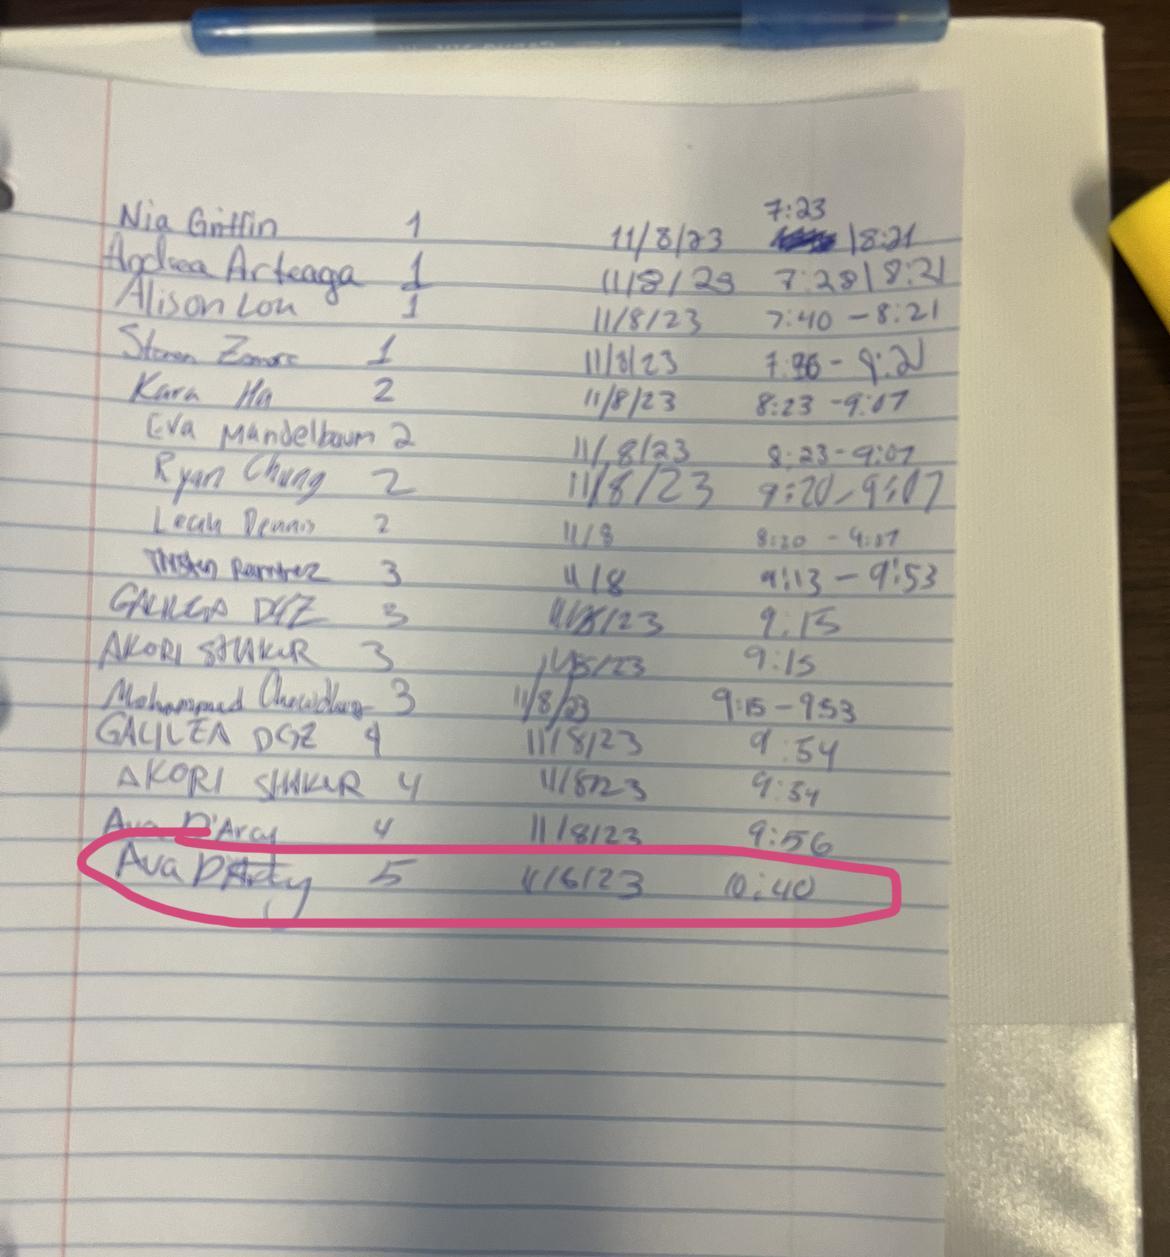 Nia Griffin 1 11/8/23 7:23 |8:21
Andrea Arteaga 1 11/8/23 7:28|8:21
Alison Lou 1 11/8/23 7:40 - 8:21
1 11/8/23 - 8:21
Kara Ha 2 11/8/23 8:23 - 9:07
Eva Mandelbaum 2 11/8/23 8:23 - 9:07
Ryan Chung 2 11/8/23 9:20 - 9:07
Leah Dennis 2 11/8 8:30 - 9:07
Tristen Ramirez 3 11/8 9:13 - 9:53
GALILEA DGZ 3 11/8/23 9:15
AKORI SHAKUR 3 11/8/23 9:15
Mohammed Chowdhury 3 11/8/23 9:15 - 953
GALILEA DGZ 4 11/8/23 9:54
AKORI SHAKUR 4 11/8/23 9:54
Ava D'Arcy 4 11/8/23 9:56
Ava D'Arcy 5 11/6/23 10:40